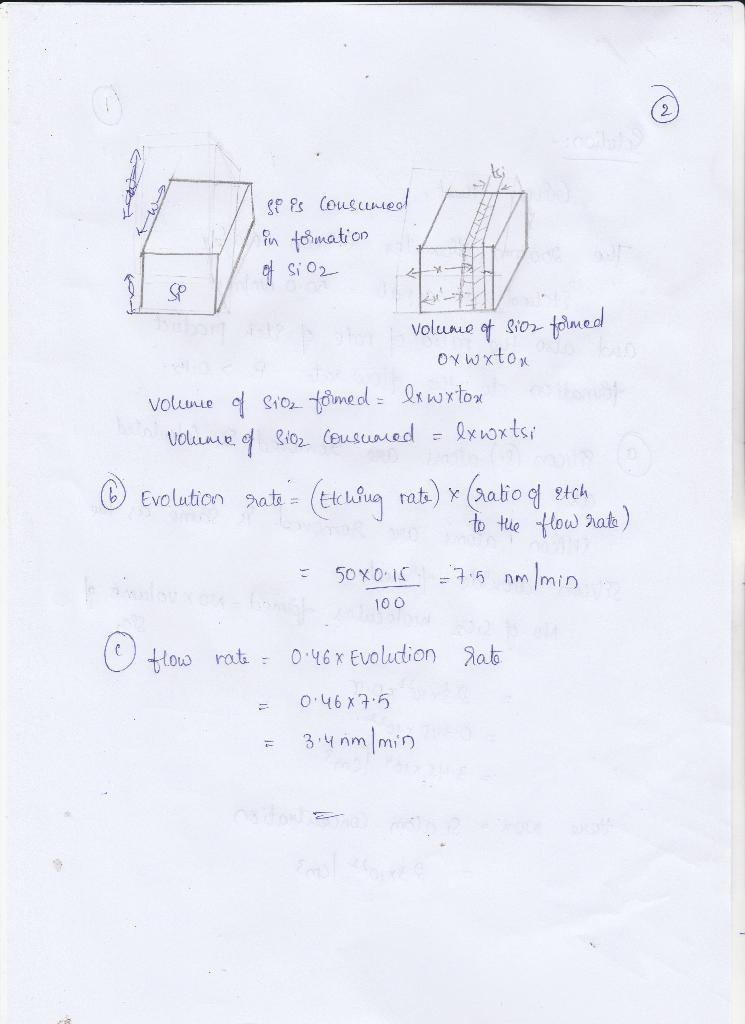 2
tsi
Si is consumed
in formation
of SiO2
w
Si
x
x'
volume of SiO2 formed
oxwxtox
volume of SiO2 formed = lxwxtox
volume of SiO2 consumed = lxwxtsi
(b) Evolution rate = (Etching rate) x (ratio of etch
to the flow rate)
= 50x0.15/100 = 7.5 nm/min
(c) flow rate = 0.46 x Evolution Rate
= 0.46x7.5
= 3.4 nm/min
=